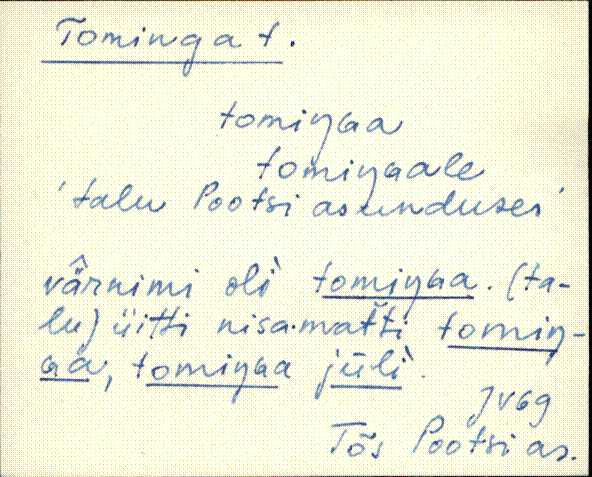 Tominga t.
tomiŋɢa
tomiŋɢale
'talu Pootsi asunduses'
vä̂rnimi oli tomiŋɢa. (ta-
lu) üitti nisa·matti tomiŋ-
ɢa, tomiŋɢa jüli.
Jv69
Tõs Pootsi as.